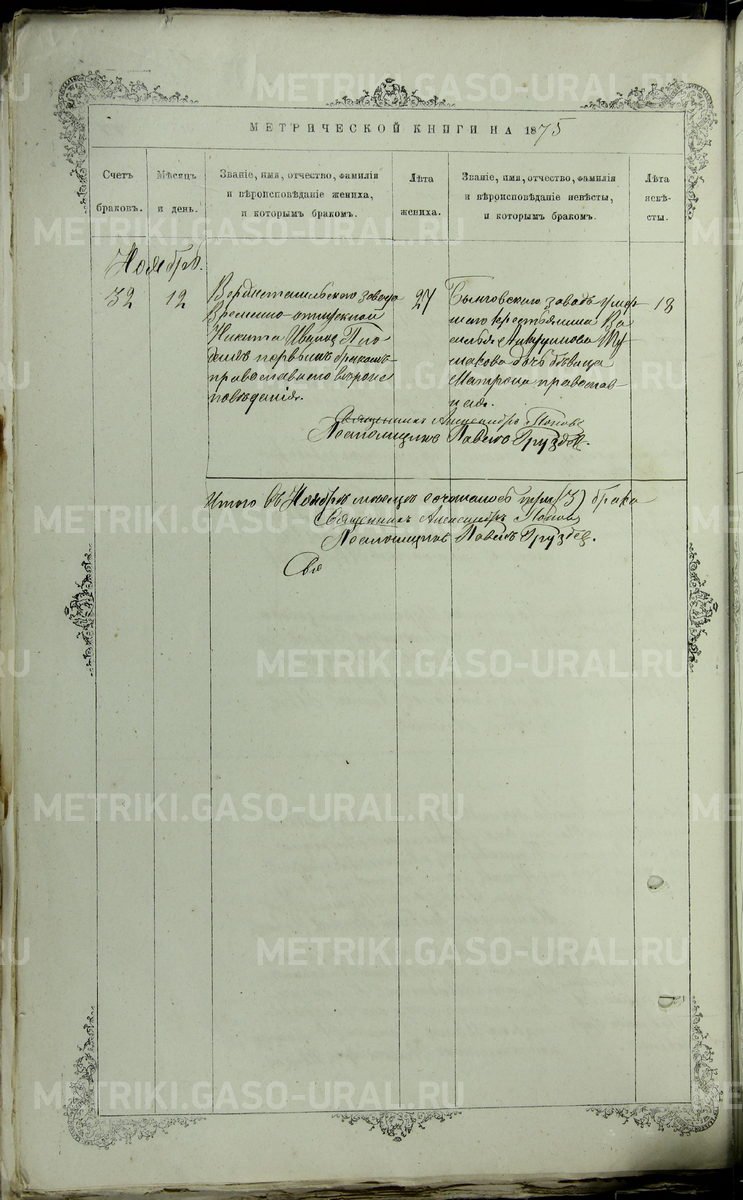 МЕТРИЧЕСКОЙ КНИГИ НА 1875
Счетъ браковъ.
Мѣсяцъ и день.
Званіе, имя, отчество, фамилія и вѣроисповѣданіе жениха, и которымъ бракомъ.
Лѣта жениха.
Званіе, имя, отчество, фамилія и вѣроисповѣданіе невѣсты, и которымъ бракомъ.
Лѣта невѣсты.
Ноябрь.
32
12
завода
Временно-отпускной
Никита Ивановъ
первымъ бракомъ
православнаго вѣроис-
повѣданія.
27
Быньговскаго завода умер-
шаго крестьянина Ва-
силья
дочь дѣвица
Матрона православ-
ная.
18
Священникъ Александръ Поповъ
Псаломщикъ Павелъ Груздев.
Итого въ Ноябрѣ мѣсяцѣ сочталось три (3) брака
Священникъ Александръ Поповъ
Псаломщикъ Павелъ Груздев.
Свя
METRIKI.GASO-URAL.RU